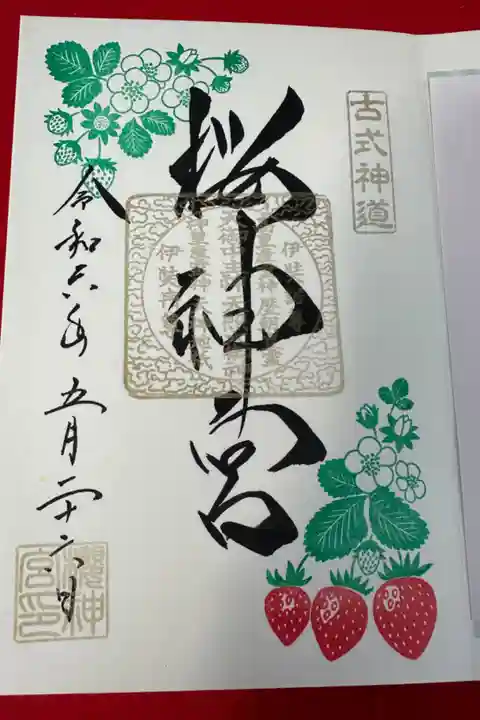 古式神道
桜神宮
令和六年五月二十六日
櫻神宮印